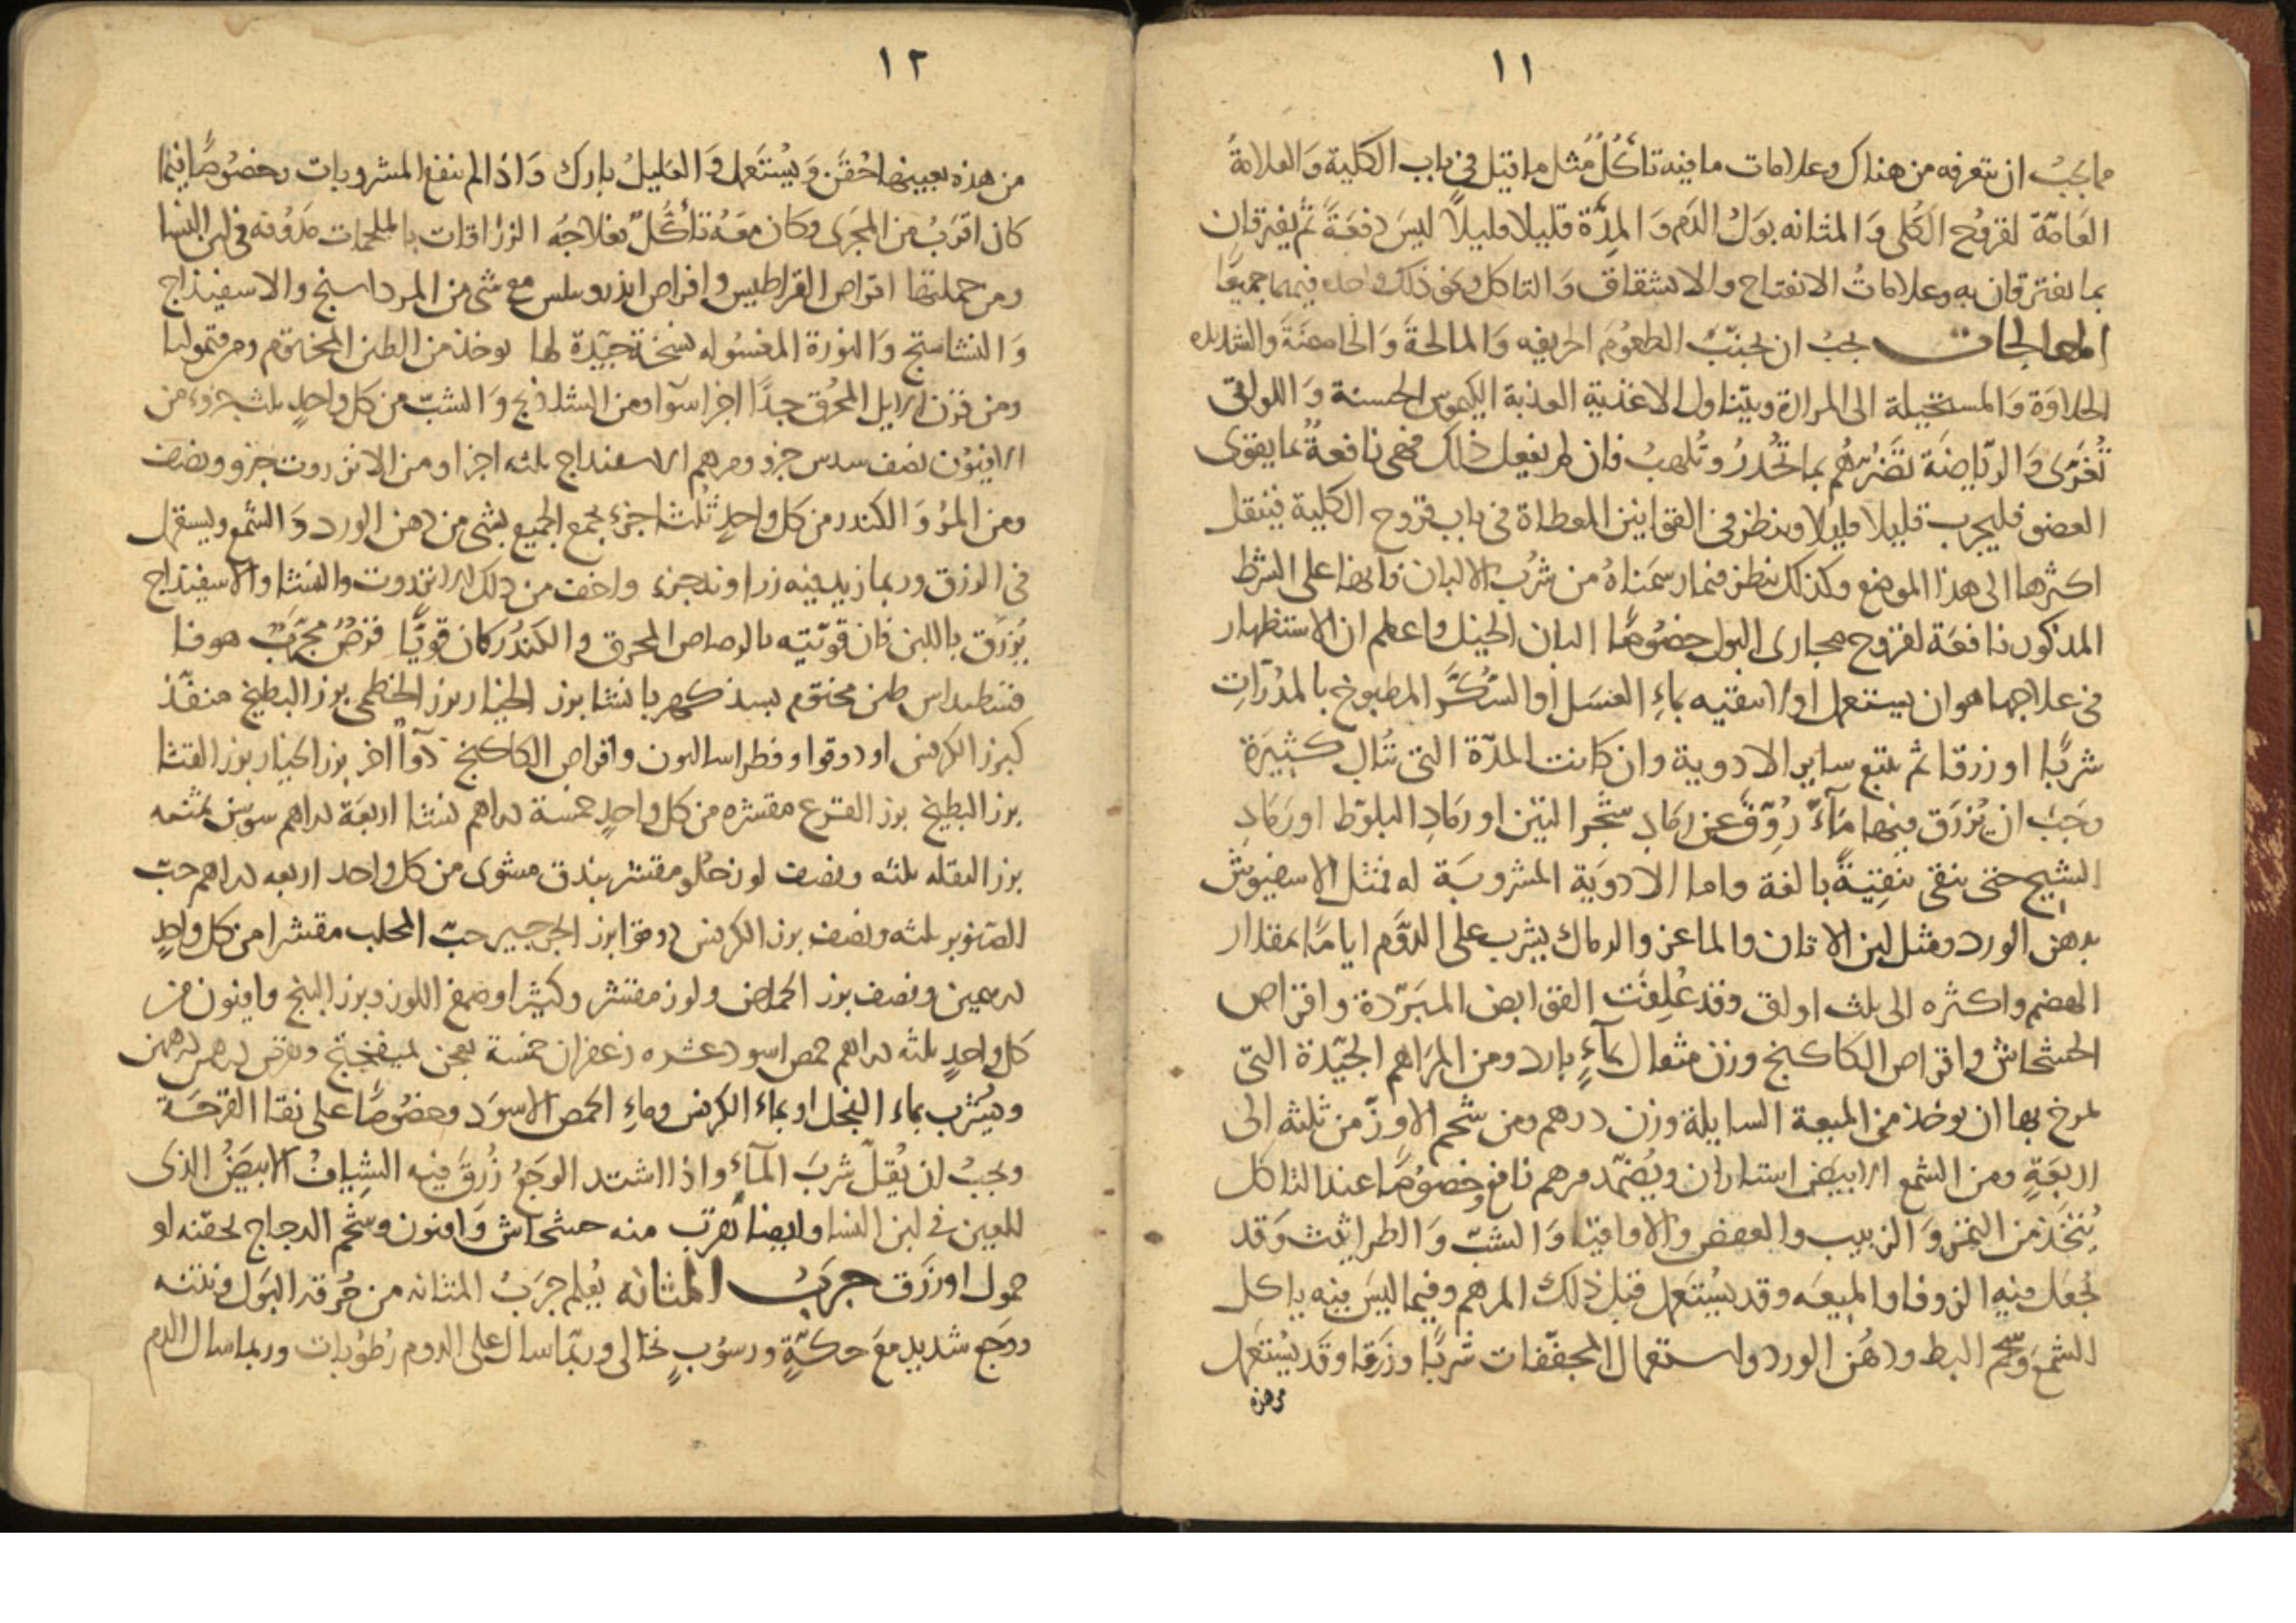 ١١
مما يجب ان يتعرفه من هناك وعلامات ما فيه تأكُّل مثل ما قيل في باب الكلية وَالعلامةُ
العَامّة لقروُح الكُلى وَالمثانه بوَلُ الدَم وَالمِدَّة قليلا قليلاً ليسَ دفعَةً ثم يفترقان
بما يفترقان به وعلاماتُ الانفتاح والانشقاق وَالتاكل وغير ذلك واحده فيهما جميعًا
المعالجات يجبُ ان يجنبّ الطعوُمَ الحريفه وَالمالحةَ وَالحامضَةَ والشديده
الحلاوَة وَالمستحيلة الى المرارة ويتناول الاغذية العذبة الكيموس الحسنة وَاللواتى
تُغَرّى وَالرّياضَة تضَرُّهُم بما تُحْدرُ وتُلهبُ فان لم يفعل ذلك فهى نافعةٌ بما يقوى
العضو فليجرب قليلا قليلا وينظر فى القوانين المعطاة فى باب قروح الكلية فينقل
اكثرها الى هذا الموضع وكذلك ينظر فيما رسمَناهُ من شرُب الالبان فانها على الشرط
المذكور نافعَة لقروح مجارى البول خضوُصًا البان الخيل واعلم ان الاستظهار
فى علاجها هو ان يستعمل اولا سقيه بماءِ العَسَل أو السُّكَّر المطبوخ بالمدُرّاتِ
شربًا او زرقا ثم يتبع ساير الادوية وان كانت المدّة التى تُبال كثيَرة
وَجَبَ ان يُزرَق فيها مَآءٌ رُوِّقَ عن رماد شجَر التين او رمَادِ البلوّط او رَمَادِ
الشيح حتى ينقى تنقِيَةً بالغة واما الادوَية المشروبَة له فمثل الاسفيوش
بدهن الورد ومثل لبن الاتان والماعز والرماك يشرب على الدوَّم ايامًا بمقدار
الهضم واكثره الى ثلث اواق وقد عُلِفَت القوابض المبَرّدة واقراص
الخشخاش واقراص الكاكنج وزن مثقال بمآءٍ بارد ومن المرَاهم الجيّدة التى
يمرخ بها ان يوخذ من الميعة السايلة وزن درهم ومن شحم الاوِزّ من ثلثهِ الى
اربعَةٍ ومن الشمع الابيَض استاران ويُضَمّد مرهم نافع وخصوُصًا عند التاكل
يُتخَذ من التمر وَالزبيب والعفص والاقاقيا وَالشبّ وَالطراثيث وَقد
يُجعَل فيه الزوفا والميعَه وقد يسُتعَمل قبل ذلك المرهم وفيما ليسَ فيه ياكل
الشمعَ وشحْم البط ودهُن الورد واستعمال المجفّفات شربًا وزَرقا وقد يسُتعَمل
من هذه
١٢
من هذه بعينها حُقَن وَيُستَعمل وَالقليلُ بارك وَاذا لم ينفع المشروبات وخصُوصًا فيما
كان اقرَبُ من المجرَى وكان معَهُ تأكُّلٌ فعلاجهُ الزرّاقات بالملحمات مَدُوفه فى لبن النسا
ومن جملتها اقراص القراطيس واقراص اندروسلس مع شى من المرداسنج والاسفيذاج
وَالنشاستج وَالنورَة المغسُوله نسُخة جيّدة لها يوخذ من الطين المختوم ومن قيموليا
ومن قرن الايل المحُرق جدًا اجزا سَوآ ومن الشاذنج وَالشبّ من كل واحدٍ ثلث جزوء من
الافيوُن نصف سدس جزو ومرهم الاسفيداج ثلثه اجزا ومن الانزروت جزو ونصف
ومن المرُ وَالكندر من كل واحدٍ ثلُث جزء يجمع الجميع بشى من دهن الورد وَالشمع ويستعمل
فى الزرق وربما زيد فيه زراوند جزء واخف من ذلك الانزروت والنشا والاسفيذاج
يُزرَق باللبن فان قوّيته بالرصاص المحرق والكندُر كان قويًا قرصٌ مجَرّبٌ هوفا
قسطيداس طين مختوم بسد كهربا نشا بزر الخيار بزر الخطمى بزر البطيخ منفّذ
كبزر الكرفس او دوقوا وفطراساليون واقراص الكاكنج دوآ اخر بزر الخيار بزر القثا
بزر البطيخ بزر القرع مقشره من كل واحدٍ خمسة دراهم نشا اربعَة دراهم سوسن ثمنيه
بزر البقله ثلثه ونصف لوز حُلو مقشر بندق مشوى من كل واحد اربعه دراهم حبّ
الصَنوبر ثلثه ونصف بزر الكرفس دوقو ابزر الجرجير حبّ المحلب مقشرا من كل واحدٍ
درهمين ونصف بزر الحماض ولوز مقشر وكثيرا وصمغ اللوز وبزر البنج وافيون من
كل واحدٍ ثلثه دراهم حمص اسود عشره زعفران خمسة يعجن بميفختج ويقرص درهمى درهمين
ويُشرب بماء الفجل او بماء الكرفس وماءِ الحمص الاسوَد وخصُوصًا على نقا القرحَة
ويجبُ ان يُقلّ شربَ المآء واذا اشتد الوَجَعُ زُرِقَ فيه الشيافُ الابيَضُ الذى
للعين فى لبن النسا وايضا يُقرّب منه خشخاش وَافيون وشحم الدجاج يحقنه او
حمول او زرَق جرَبُ المثانه يُعلم جرَبُ المثانه من حُرقه البَول ونتنه
ووَجع شديد معَ حكةٍ ورسُوبٍ نخالى وربّما سال على الدوم رطُوبات وربما سال الدم